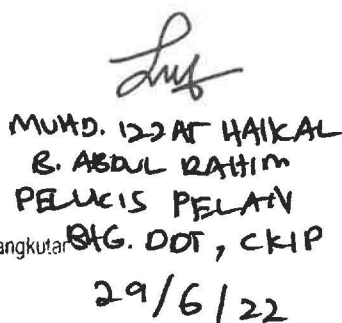 MUHD. IZZAT HAIKAL
B. ABDUL RAHIM
PELUKIS PELAN
angkutan BHG. DDT, CKIP
29/6/22